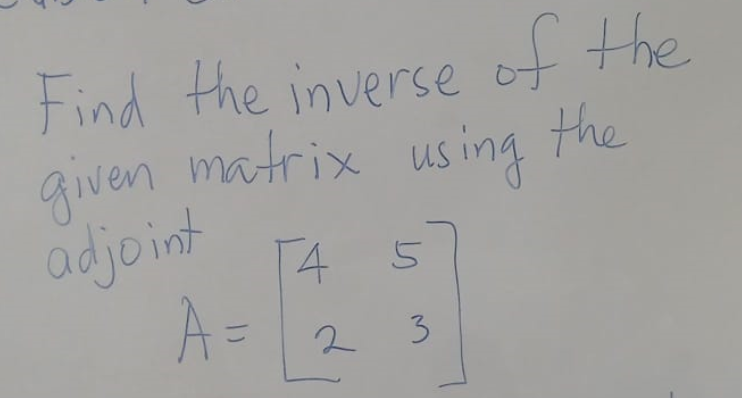 Find the inverse of the
given matrix using the
adjoint
A = [4 5
2 3]